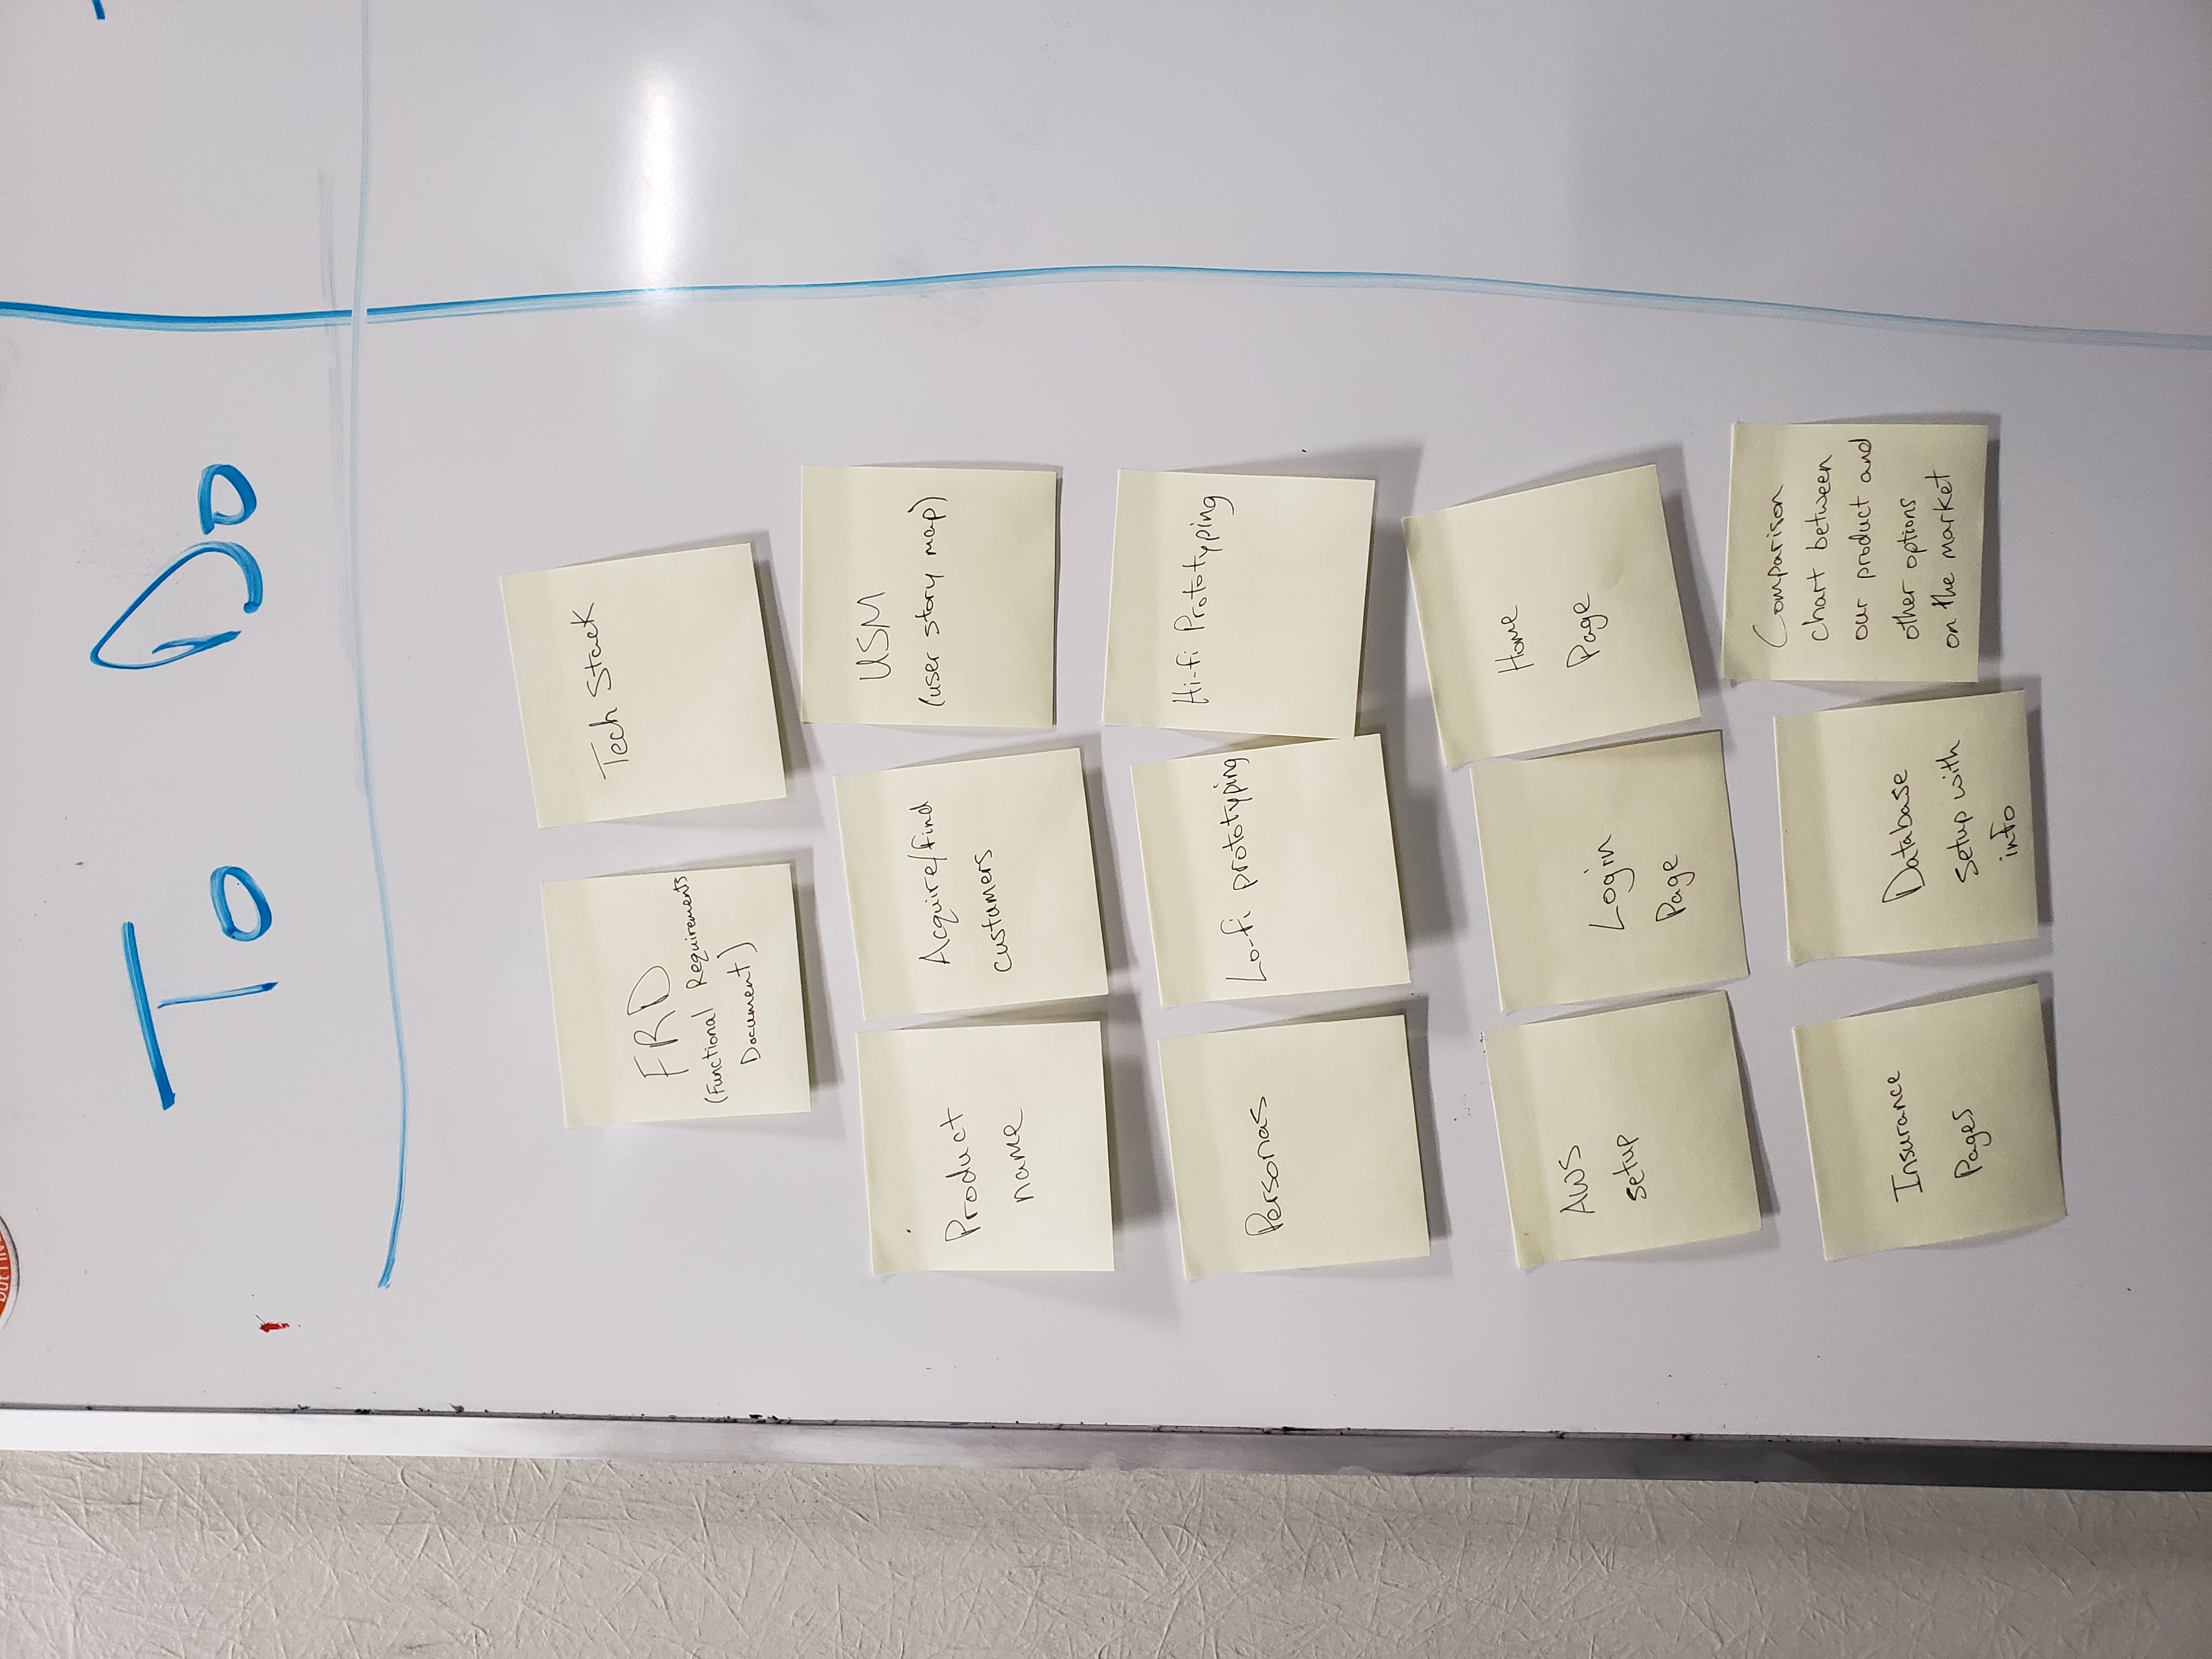 but I liv
To Do
FRD
(Functional Requirements
Document)
Tech Stack
Product
name
Acquire/find
custumers
USM
(user story map)
Personas
Lo-fi prototyping
Hi-fi Prototyping
AWS
setup
Login
Page
Home
Page
Insurance
Pages
Database
setup with
info
Comparison
chart between
our product and
other options
on the market